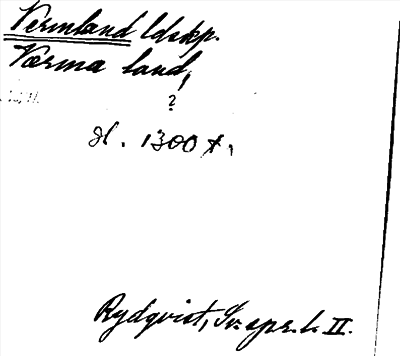 Vermland ldskp.
Værma land,
?
sl. 1300 t.
Rydqvist, Sv. spr. l. II.